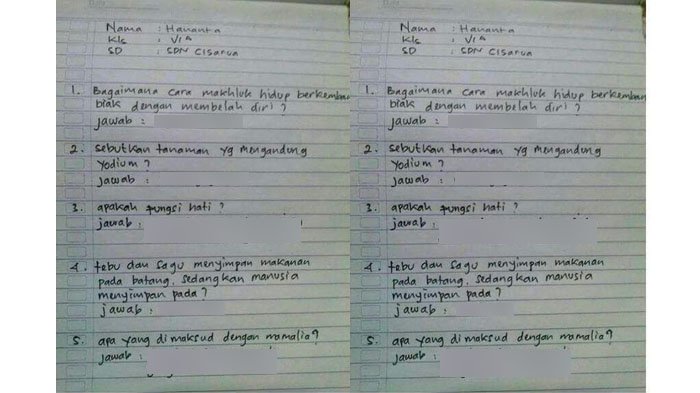 Nama : Hananta
Kls : VIA
SD : SDN Cisarua
1. Bagaimana cara makhluk hidup berkemban
biak dengan membelah diri ?
jawab :
2. sebutkan tanaman yg mengandung
yodium ?
jawab :
3. apakah fungsi hati ?
jawab :
4. tebu dan sagu menyimpan makanan
pada batang, sedangkan manusia
menyimpan pada ?
jawab :
5. apa yang dimaksud dengan mamalia ?
jawab :
Nama : Hananta
Kls : VIA
SD : SDN Cisarua
1. Bagaimana cara makhluk hidup berkemban
biak dengan membelah diri ?
jawab :
2. sebutkan tanaman yg mengandung
yodium ?
jawab :
3. apakah fungsi hati ?
jawab :
4. tebu dan sagu menyimpan makanan
pada batang, sedangkan manusia
menyimpan pada ?
jawab :
5. apa yang dimaksud dengan mamalia ?
jawab :